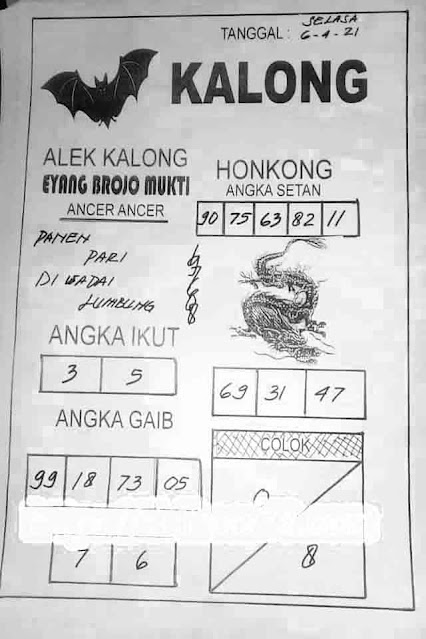 SELASA
TANGGAL : 6-4-21
KALONG
ALEK KALONG
EYANG BROJO MUKTI
ANCER ANCER
PANEN
PARI
DI WADAI
LUMBUNG
HONKONG
ANGKA SETAN
90 75 63 82 11
ANGKA IKUT
3 5
69 31 47
ANGKA GAIB
99 18 73 05
7 6
COLOK
8